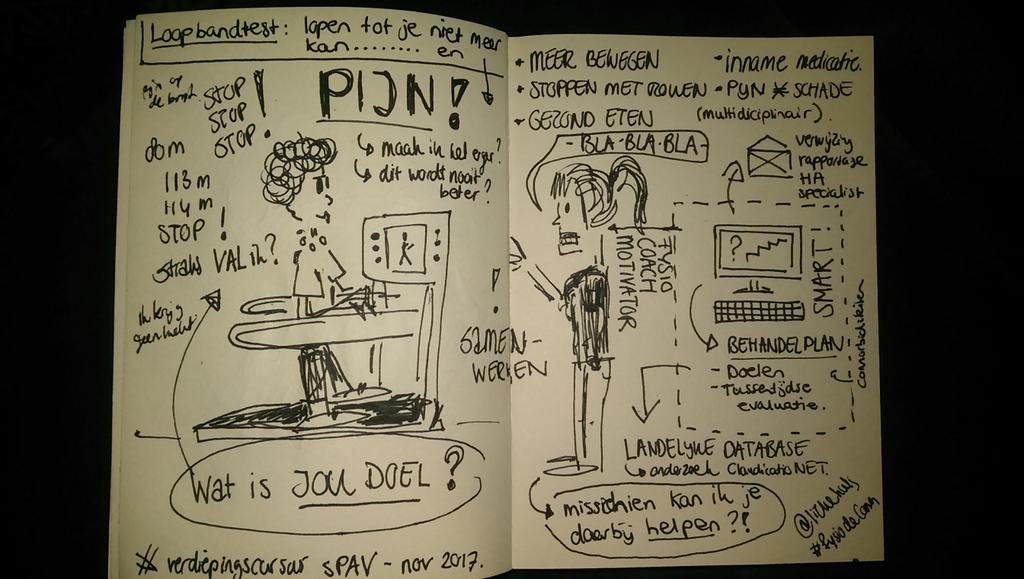 Loopbandtest: lopen tot je niet meer
kan........ en
PIJN!
pijn op
de borst
STOP!
STOP
STOP!
↳ maak ik het erger?
↳ dit wordt nooit
beter?
dom
113 m
114 m
STOP!
straks VAL ik?
Ik krijg
geen lucht
!
SAMEN-
WERKEN
Wat is JOU DOEL?
# verdiepingscursus sPAV - nov 2017.
• MEER BEWEGEN
• STOPPEN MET ROKEN
• GEZOND ETEN
- inname medicatie.
- PIJN ≠ SCHADE
(multidiciplinair).
- BLA-BLA-BLA-
verwijzing
rapportage
HA
specialist
FYSIO
COACH
MOTIVATOR
?
SMART!
BEHANDELPLAN
- Doelen
- Tussentijdse
evaluatie.
comorbiditeiten
LANDELIJKE DATABASE
↳ onderzoek ClaudicatioNET.
misschien kan ik je
daarbij helpen?!